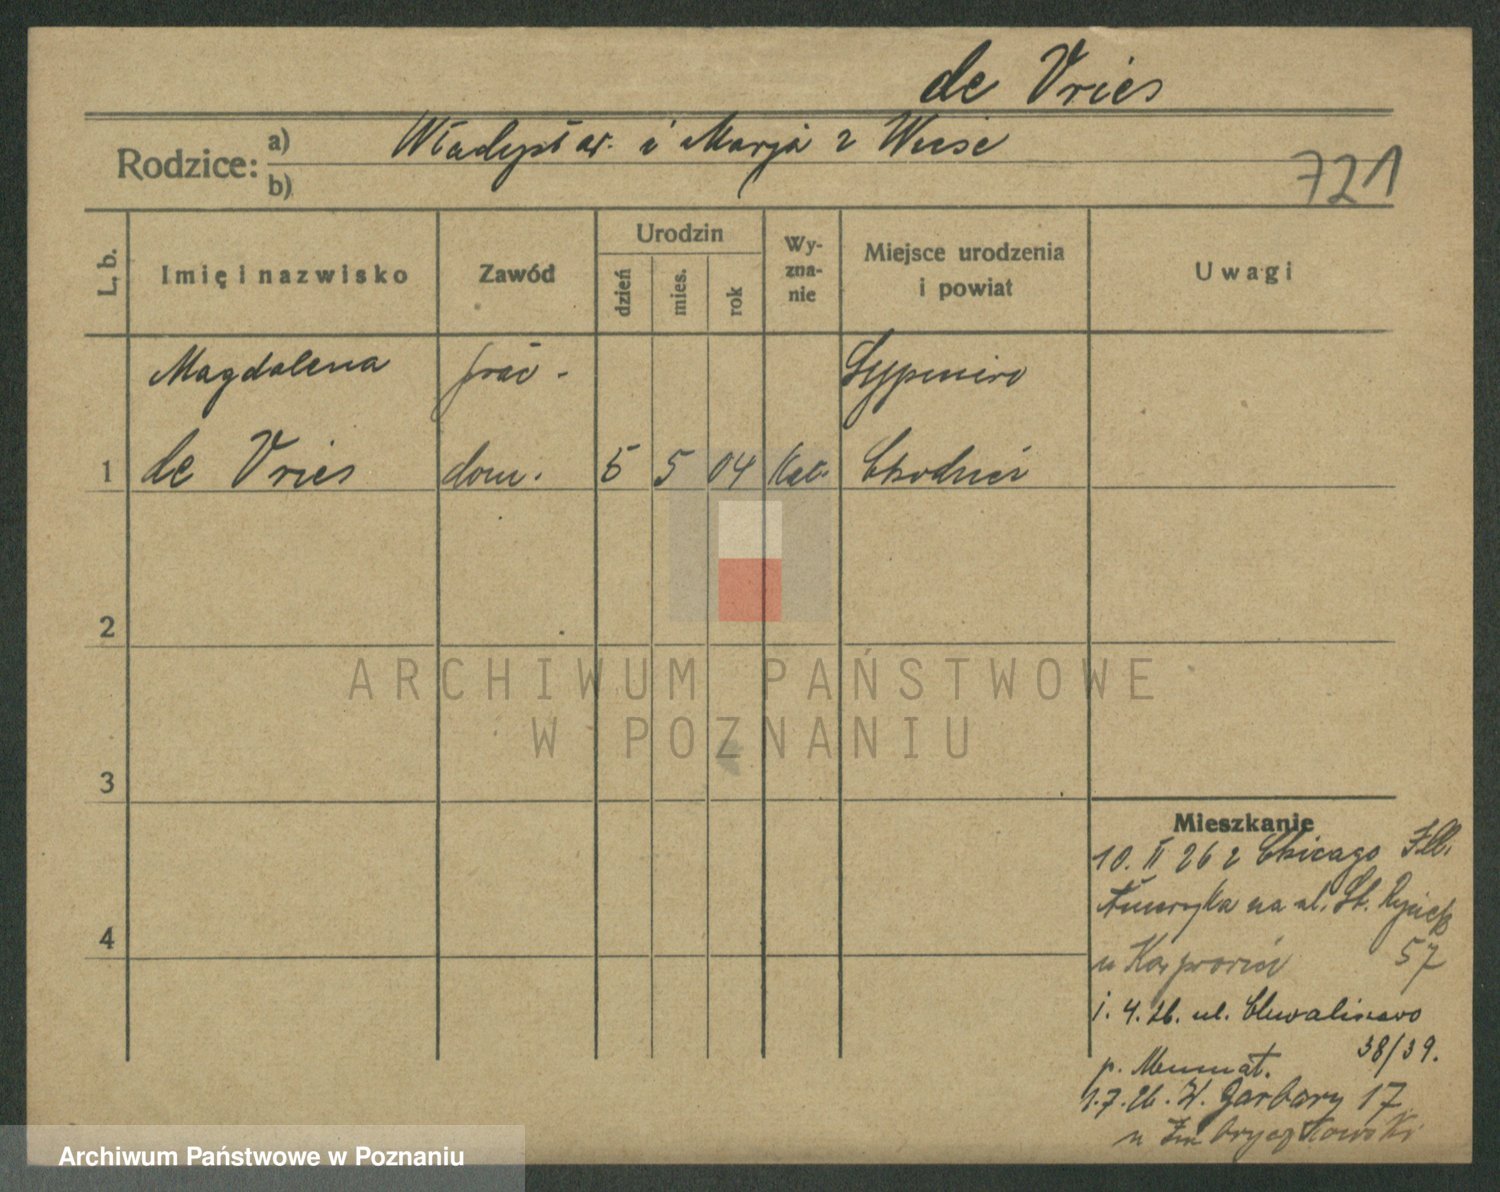 de Vries
Rodzice: a) Władysław i Marja z Wiese
b)
721
L. b. Imię i nazwisko Zawód Urodzin Wy-zna-nie Miejsce urodzenia i powiat Uwagi
dzień mies. rok
Magdalena prac. Sypniewo
1 de Vries dom. 5 5 04 Kat. Chodzież
2
3
4
Mieszkanie
10. II 26 z Chicago Ill.
Ameryka na ul. St. Rynek
57
1. 4. 26. ul. Chwaliszewo
38/39.
1.7.26. W. Garbary 17
ARCHIWUM PAŃSTWOWE
W POZNANIU
Archiwum Państwowe w Poznaniu